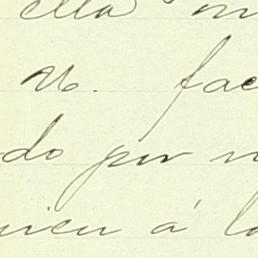 ella
V. fac
do por n
uien á lo